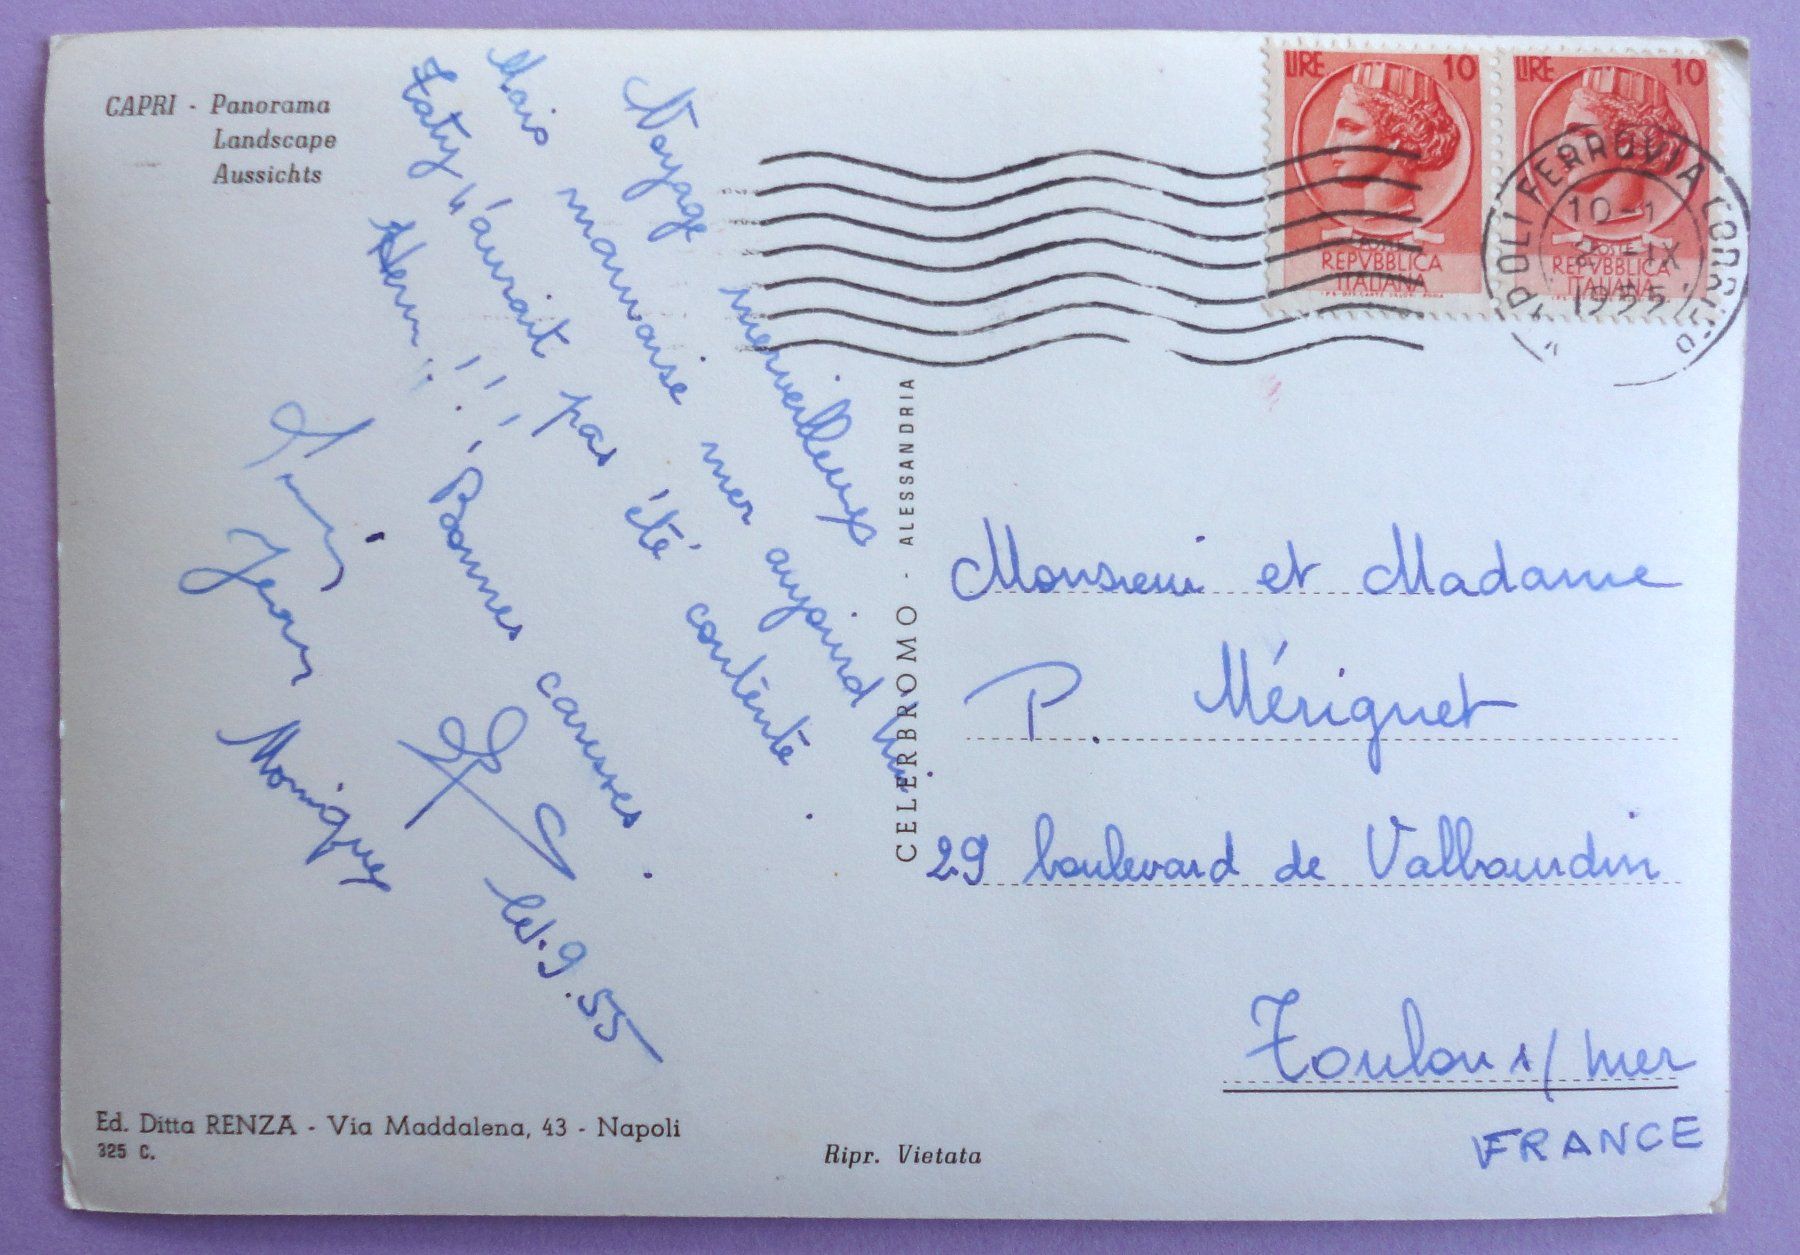 CAPRI - Panorama
Landscape
Aussichts
Voyage merveilleux
Mais mauvaise mer aujourd'hui
Katy n'aurait pas été contente.
Hem!!!! Bonnes caresses.
Jean
Monique
LIRE 10
LIRE 10
POSTE
REPVBBLICA
ITALIANA
POSTE
REPVBBLICA
ITALIANA
NAPOLI FERROVIA CORRISP
10-1
IX
1955
CELERBROMO - ALESSANDRIA
Monsieur et Madame
P. Mériguet
29 boulevard de Valbourdin
Toulon s/mer
FRANCE
Ed. Ditta RENZA - Via Maddalena, 43 - Napoli
325 C.
Ripr. Vietata